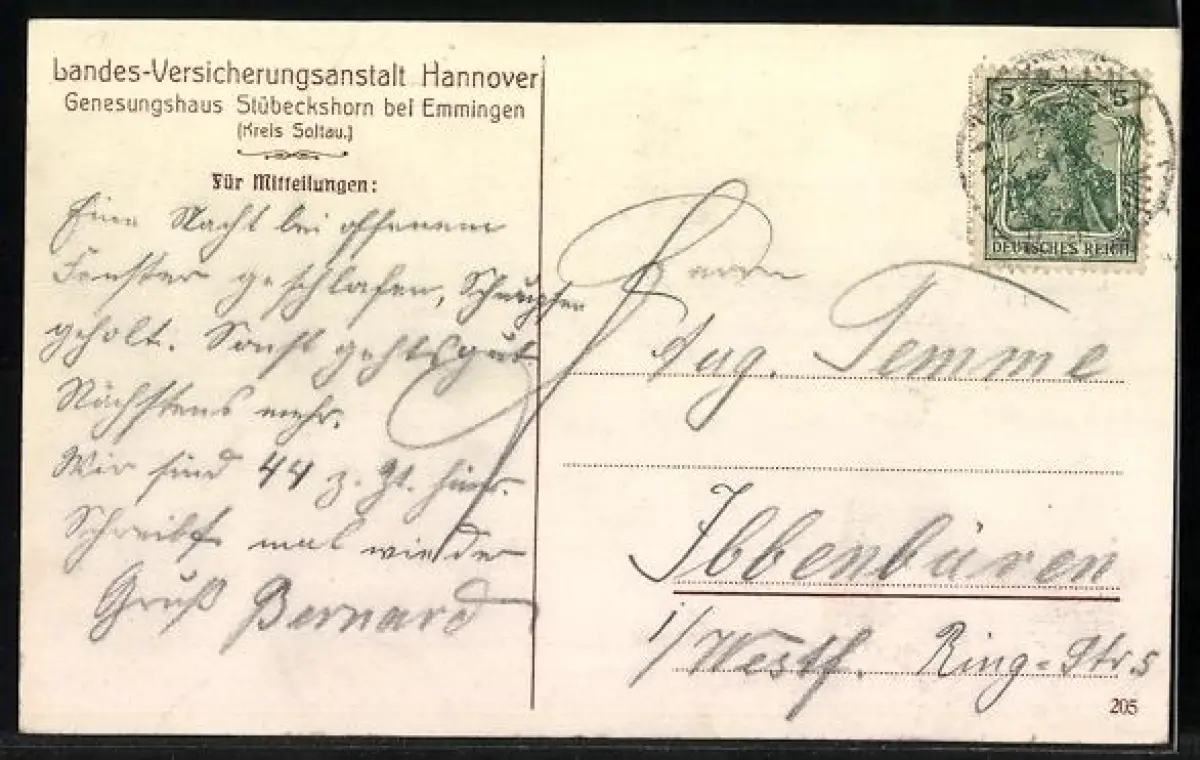 Landes-Versicherungsanstalt Hannover
Genesungshaus Stübeckshorn bei Emmingen
(Kreis Soltau.)
Für Mitteilungen:
Eine Nacht bei offenem
Fenster geschlafen, Schnupfen
geholt. Sonst gehts gut
Nächstens mehr.
Wir sind 44 z. Zt. hier.
Schreibt mal wieder
Gruß Bernard
5 5
DEUTSCHES REICH
Herrn
Aug. Temme
Ibbenbüren
i/Westf. Ring-Str 5
205